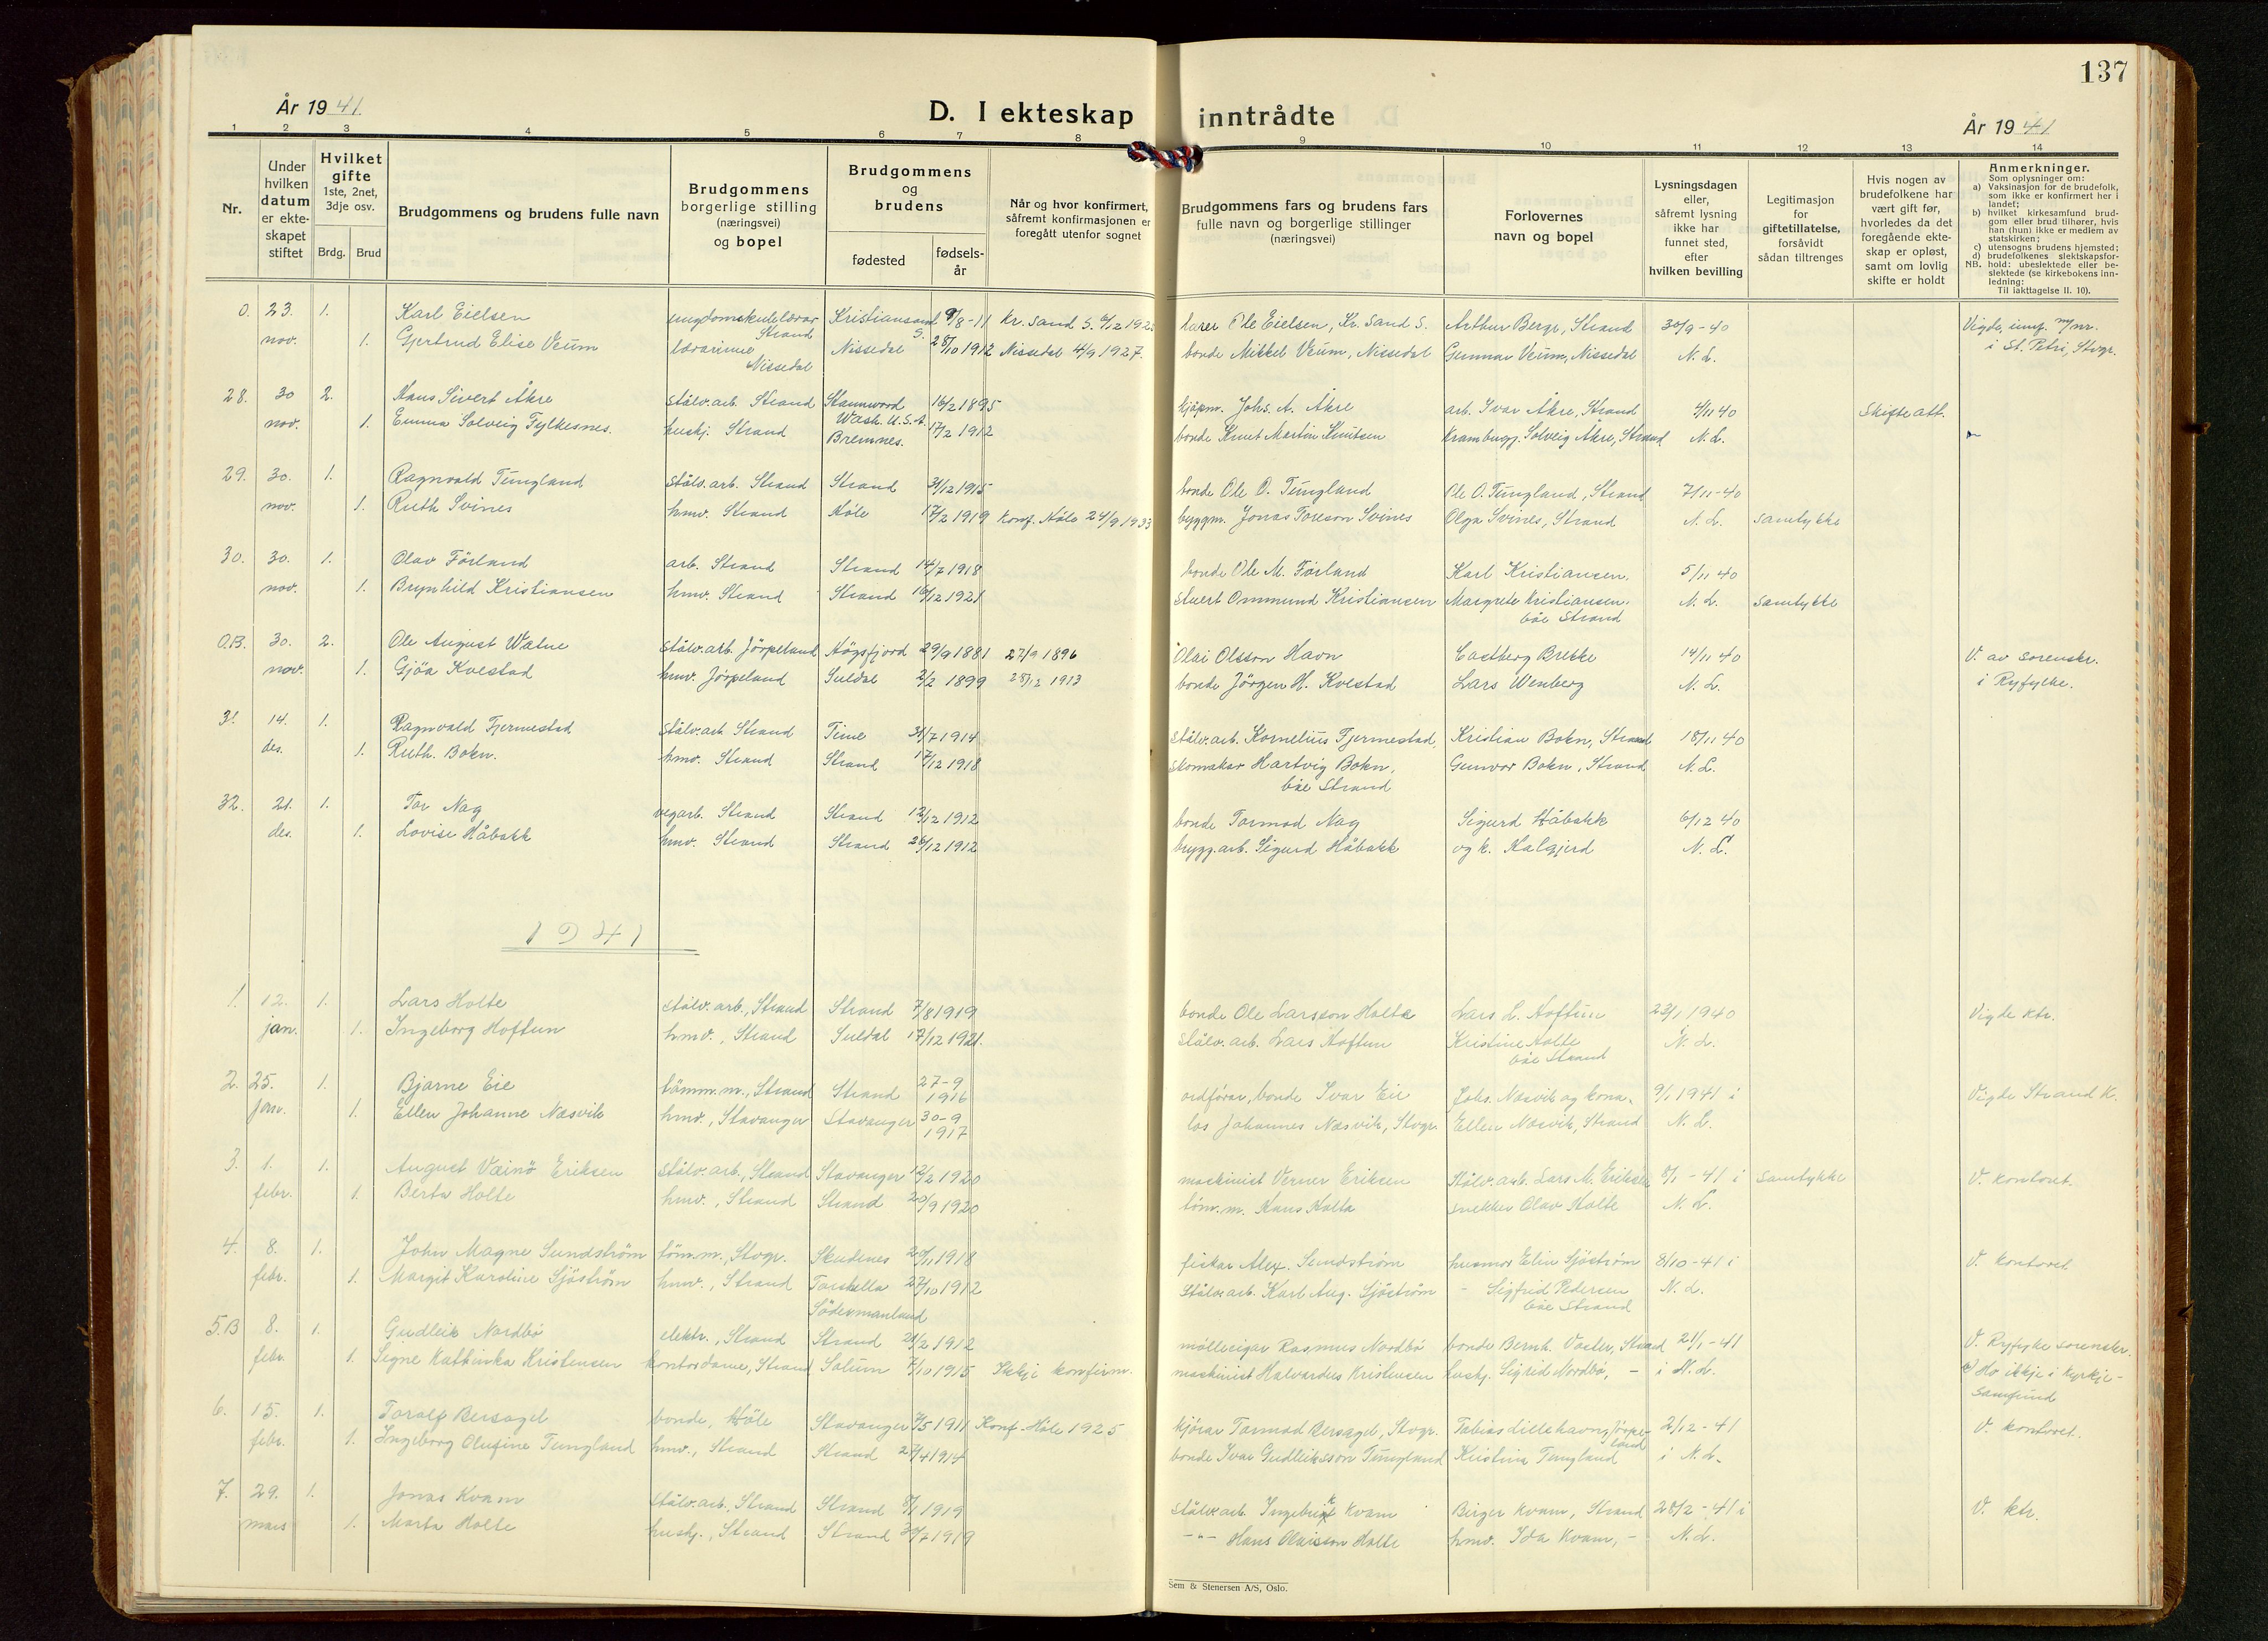 137
År 1941.
D. I ekteskap inntrådte
År 1941
1 2 3 4 5 6 7 8 9 10 11 12 13 14
Nr.
Under hvilken datum er ekteskapet stiftet
Hvilket gifte 1ste, 2net, 3dje osv.
Brdg. Brud
Brudgommens og brudens fulle navn
Brudgommens borgerlige stilling (næringsvei) og bopel
Brudgommens og brudens
fødested
fødselsår
Når og hvor konfirmert, såfremt konfirmasjonen er foregått utenfor sognet
Brudgommens fars og brudens fars fulle navn og borgerlige stillinger (næringsvei)
Forlovernes navn og bopel
Lysningsdagen eller, såfremt lysning ikke har funnet sted, efter hvilken bevilling
Legitimasjon for giftetillatelse, forsåvidt sådan tiltrenges
Hvis nogen av brudefolkene har vært gift før, hvorledes da det foregående ekteskap er opløst, samt om lovlig skifte er holdt
Anmerkninger.
Som oplysninger om:
a) Vaksinasjon for de brudefolk, som ikke er konfirmert her i landet;
b) hvilket kirkesamfund brudgom eller brud tilhører, hvis han (hun) ikke er medlem av statskirken;
c) utensogns brudens hjemsted;
d) brudefolkenes slektskapsforhold: ubeslektede eller beslektede (se kirkebokens innledning:
NB. Til iakttagelse II. 10).
0. 23. 1. Karl Eielsen ungdomskulelærar Strand Kristiansand S. 9/8-11 Kr. sand S. lærer Ole Eielsen, Kr. Sand S. Arthur Berge, Strand 30/9-40 Vigde, innf. m/nr.
nov. 1. Gjertrud Elise Veum lærarinne Nissedal Nissedal 28/10 1912 Nissedal 4/9 1927. bonde Mikkel Veum, Nissedal Gunnar Veum, Nissedal N. L. i St. Petri, Stvgr.
28. 30 2. Hans Sivert Åkre stålv.arb. Strand Stannwood Wash. U.S.A. 16/2 1895 kjøpm. Johs. A. Åkre arb. Ivar Åkre, Strand 4/11 40 Skifte att.
nov. 1. Emma Solveig Fylkesnes. huskj. Strand Bremnes. 17/2 1912 bonde Knut Martin Knutsen Krambugj. Solveig Åkre, Strand N. L.
29. 30. 1. Ragnvald Tungland stålv.arb. Strand Strand 31/12 1915 bonde Ole O. Tungland Ole O. Tungland, Strand 7/11-40
nov. 1. Ruth Svines hmv. Strand Höle 17/2 1919 Konf. Höle 24/9 1933 byggm. Jonas Toreson Svines Olga Svines, Strand N. L. samtykke
30. 30. 1. Olav Förland arb. Strand Strand 14/7 1918 bonde Ole M. Förland Karl Kristiansen. 5/11 40
nov. 1. Brynhild Kristiansen hmv. Strand Strand 16/12 1921 stuert Ommund Kristiansen Margrete Kristiansen. båe Strand N. L. samtykke
O.B. 30. 2. Ole August Watne stålv.arb. Jörpeland Högsfjord 29/9 1881 27/9 1896 Olai Olsson Havn Castberg Brekke 14/11 40 V. av sorenskr.
nov. 1. Gjöa Kvestad hmv. Jörpeland Suldal 2/2 1899 28/12 1913 bonde Jörgen H. Kvestad Lars Wenberg N. L. i Ryfylke.
31. 14. 1. Ragnvald Fjermestad stålv.arb. Strand Time 31/7 1914 stålv.arb. Kornelius Fjermestad, Kristian Bokn, Strand 18/11 40
des. 1. Ruth. Bokn. hmv. Strand Strand 17/12 1918 skomakar Hartvig Bokn, båe Strand Gunvor Bokn, Strand N. L.
32. 21. 1. Tor Nag vegarb. Strand Strand 12/12 1912 bonde Tormod Nag Sigurd Håbakk 6/12 40
des. 1. Lovise Håbakk hmv. Strand Strand 26/12 1912 brygg.arb. Sigurd Håbakk og k. Halgjerd N. L.
1941
1. 12. 1. Lars Holte stålv.arb., Strand Strand 7/8 1919 bonde Ole Larsson Holte Lars L. Hoftun 23/1 1940 Vigde ktr.
jan. 1. Ingeborg Hoftun hmv., Strand Suldal 17/12 1921. stålv.arb. Lars Hoftun Kristine Holte båe Strand i N. L.
2. 25. 1. Bjarne Eie tömm.m., Strand Strand 27-9 1916 ordförar, bonde Ivar Eie Johs. Næsvik og kona. 9/1 1941 i Vigde Strand K.
jan. 1. Ellen Johanne Næsvik hmv., Stavanger Stavanger 30-9 1917 los Johannes Næsvik, Stvgr. Ellen Næsvik, Strand N. L.
3. 1. 1. August Vainö Eriksen stålv.arb., Strand Stavanger 12/2 1920 maskinist Verner Eriksen Stålv.arb. Lars M. Eriksen 8/1-41 i samtykke V. kontoret.
febr. 1. Berta Holte hmv., Strand Strand 20/9 1920 töm.m. Hans Holta snekker Olav Holte N. L.
4. 8. 1. John Magne Sundström tömm.m., Stvgr. Skudenes 20/11 1918 fiskar Alex. Sundström husmor Elin Sjöström 8/10-41 i V. kontoret.
febr. 1. Margit Karoline Sjöström hmv., Strand Torshella Södermanland 27/10 1912 stålv.arb. Karl Aug. Sjöström - Sigfrid Pedersen båe Strand N. L.
5.B 8. 1. Gudleik Nordbö elektr., Strand Strand 21/2 1912 mölleeigar Rasmus Nordbö bonde Bernh. Vaster, Strand 21/1-41 V. Ryfylke sorenskr.
febr. 1. Signe Kathinka Kristensen kontordame, Strand Solum 7/10 1915 Ikkje konfirm. maskinist Halvardus Kristensen huskj. Sigrid Nordbö, - i N. L. b) Ho ikkje i kyrkje-samfund
6. 15. 1. Toralf Bersagel bonde, Höle Stavanger 7/5 1911 Konf. Höle 1925 kjörar Tormod Bersagel, Stvgr. Tobias Lillehavn, Jörpeland 2/12-41 V. kontoret.
febr. 1. Ingeborg Olufine Tungland hmv., Strand Strand 27/4 1914 bonde Ivar Gudleiksson Tungland Kristina Tungland i N. L.
7. 29. 1. Jonas Kvam stålv.arb., Strand Strand 8/1 1919 stålv.arb. Ingebrigt Kvam Birger Kvam, Strand 28/2-41 i V. ktr.
mars 1. Marta Holte huskj., Strand Strand 30/7 1919 -"- Hans Olaisson Holte hmv. Ida Kvam, - N. L.
Sem & Stenersen A/S, Oslo.